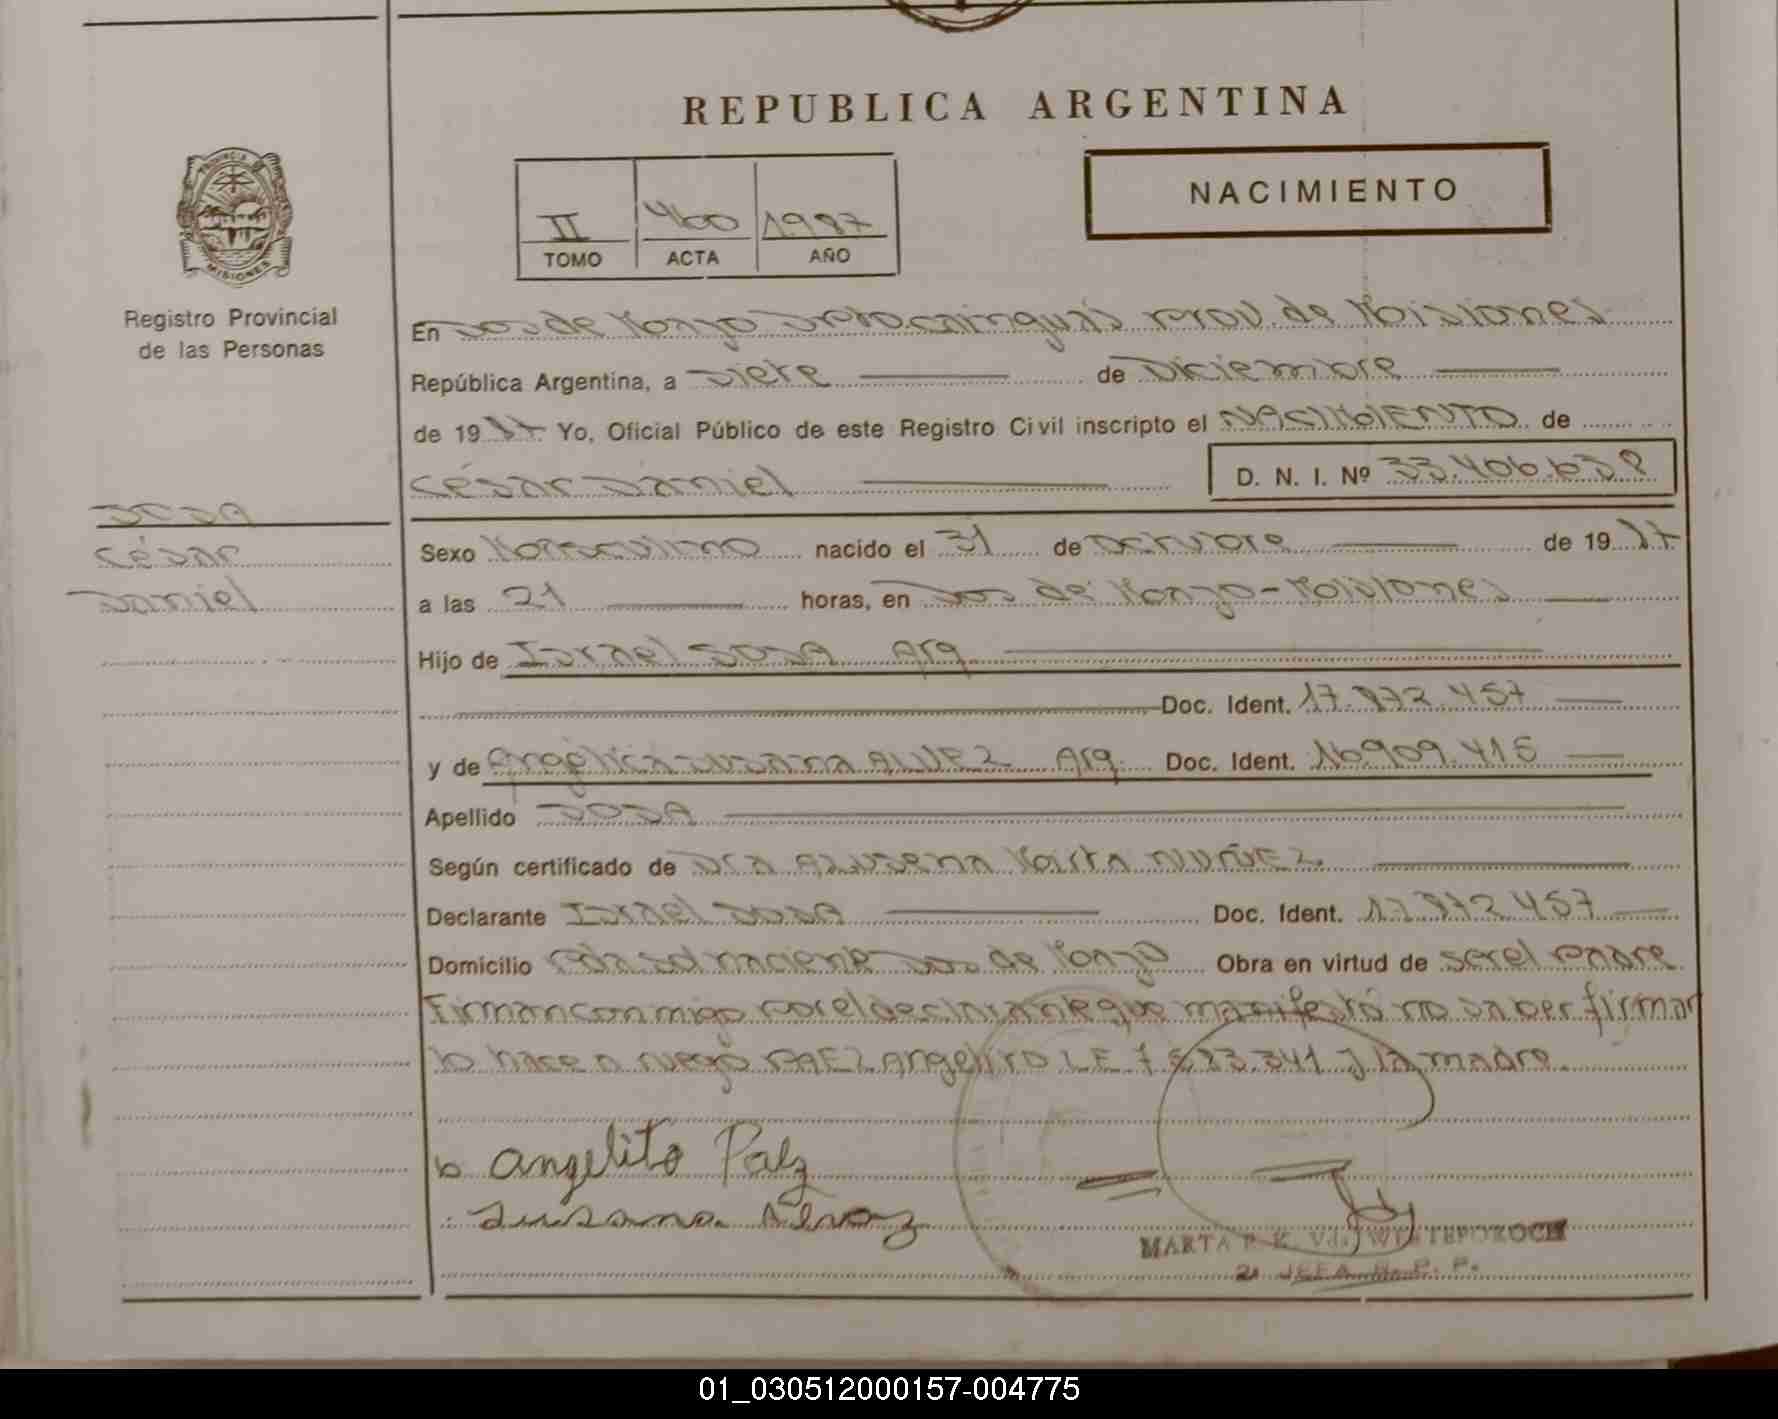 REPUBLICA ARGENTINA
NACIMIENTO
II 460 1987
TOMO ACTA AÑO
PROVINCIA DE
MISIONES
Registro Provincial
de las Personas
SOSA
César
Daniel
En Dos de Mayo Dpto Cainguás Prov. de Misiones
República Argentina, a Siete de Diciembre
de 1987 Yo, Oficial Público de este Registro Civil inscripto el NACIMIENTO de
César Daniel D. N. I. Nº 33.406.638
Sexo Masculino nacido el 31 de Octubre de 1987
a las 21 horas, en Dos de Mayo - Misiones
Hijo de Israel SOSA Arg
Doc. Ident. 17.872.457
y de Angélica Susana ALVEZ Arg. Doc. Ident. 16909.415
Apellido SOSA
Según certificado de Dra Azusena Marta NUÑEZ
Declarante Israel SOSA Doc. Ident. 17.872.457
Domicilio Dos de Mayo Obra en virtud de ser el Padre
Firman conmigo por el declarante que manifestó no saber firmar
lo hace a ruego PAEZ Angelito L.E. 7.583.341 y la madre.
Angelito Paez
Susana
MARTA
2a JEFA R. P. P.
01_030512000157-004775